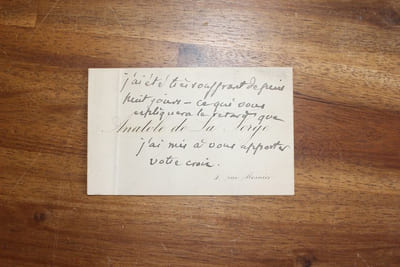 j'ai été très souffrant depuis
huit jours — ce qui vous
expliquera le retard que
Anatole de La Forge
j'ai mis à vous apporter
votre croix.
rue